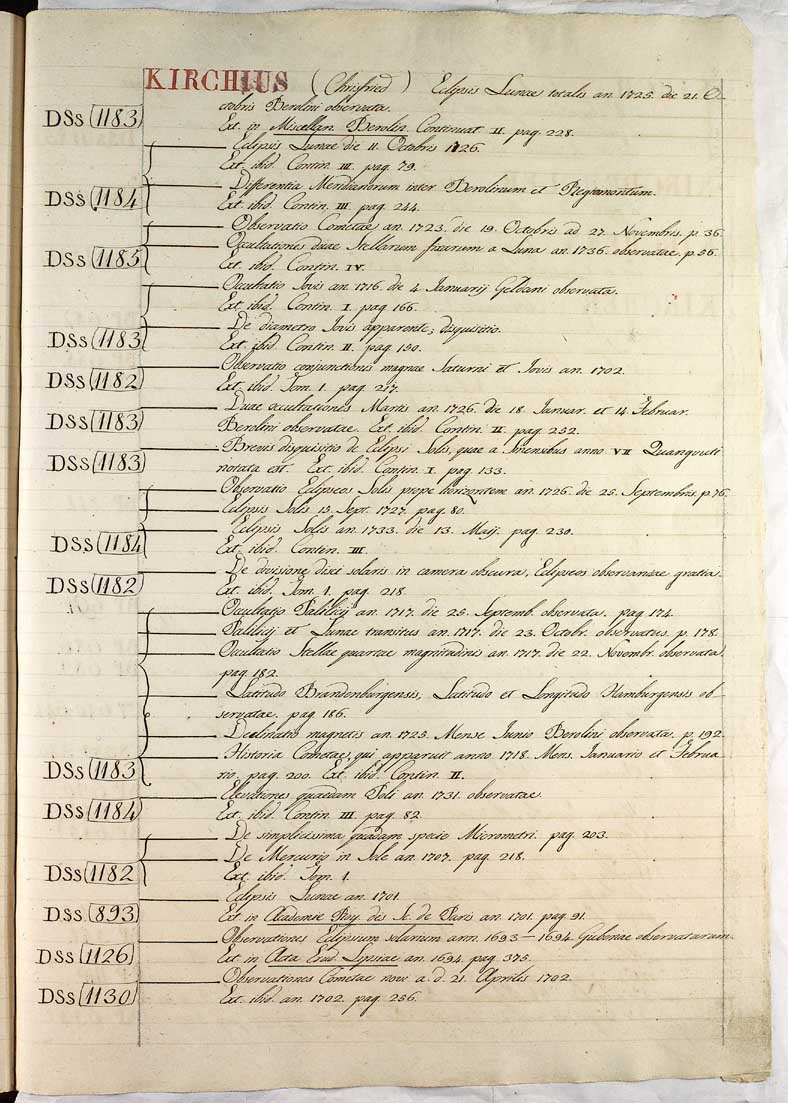 KIRCHIUS (Chrisfried) Eclipsis Lunae totalis an. 1725. die 21. O-
ctobris Berolini observata.
DSs 1183 Ext. in Miscellan. Berolin. Continuat II. pag. 228.
Eclipsis Lunae die 11. Octobris 1726.
Ext. ibid. Contin. III. pag. 79.
Differentia Meridianorum inter Berolinum et Regiomontum.
DSs 1184 Ext. ibid. Contin. III. pag. 244.
Observatio Cometae an. 1723. die 19. Octobris ad 27. Novembris. p. 36.
Occultationes duae Stellarum fixarum a Luna an. 1736. observatae. p. 56.
DSs 1185 Ext. ibid. Contin. IV.
Occultatio Iovis an. 1716. die 4. Ianuarij observata.
Ext. ibid. Contin. I. pag. 166.
De diametro Iovis apparente, disquisitio.
DSs 1183 Ext. ibid. Contin. II. pag. 150.
Observatio conjunctionis magnae Saturni et Iovis an. 1702.
DSs 1182 Ext. ibid. Tom. 1. pag. 217.
Duae occultationes Martis an. 1726. die 18. Ianuar. et 14. Februar.
DSs 1183 Berolini observatae. Ext. ibid. Contin. II. pag. 232.
Brevis disquisitio de Eclipsi Solis, quae a Sinensibus anno VII Quangvuti
DSs 1183 notata est. Ext. ibid. Contin. I. pag. 133.
Observatio Eclipseos Solis prope horizontem an. 1726. die 25. Septembris. p. 76.
Eclipsis Solis 15. Sept. 1727. pag. 80.
Eclipsis Solis an. 1733. die 13. Maij. pag. 230.
DSs 1184 Ext. ibid. Contin. III.
De divisione disci solaris in camera obscura, Eclipseos observandae gratia.
DSs 1182 Ext. ibid. Tom. 1. pag. 218.
Occultatio Palilicij an. 1717. die 25. Septemb. observata. pag. 174.
Palilicij et Lunae transitus an. 1717. die 23. Octobr. observatus. p. 178.
Occultatio Stellae quartae magnitudinis an. 1717. die 22. Novembr. observata
pag. 182.
Latitudo Brandenburgensis, Latitudo et Longitudo Hamburgensis ob-
servatae. pag. 186.
Declinatio magnetis an. 1725. Mense Iunio Berolini observata. p. 192.
Historia Cometae, qui apparuit anno 1718. Mens. Ianuario et Februa-
DSs 1183 rio. pag. 200. Ext. ibid. Contin. II.
Elevationes quaedam Poli an. 1731. observatae.
DSs 1184 Ext. ibid. Contin. III. pag. 82.
De simplicissima quadam specie Micrometri. pag. 203.
De Mercurio in Sole an. 1707. pag. 218.
DSs 1182 Ext. ibid. Tom. 1.
Eclipsis Lunae an. 1701.
DSs 893 Ext. in Academie Roy. des Sc. de Paris an. 1701. pag. 91.
Observationes Eclipsium solarium ann. 1693–1694. Gubenae observatarum.
DSs 1126 Ext. in Acta Erud. Lipsiae an. 1694. pag. 375.
Observationes Cometae novi a. d. 21. Aprilis 1702.
DSs 1130 Ext. ibid. an. 1702. pag. 256.